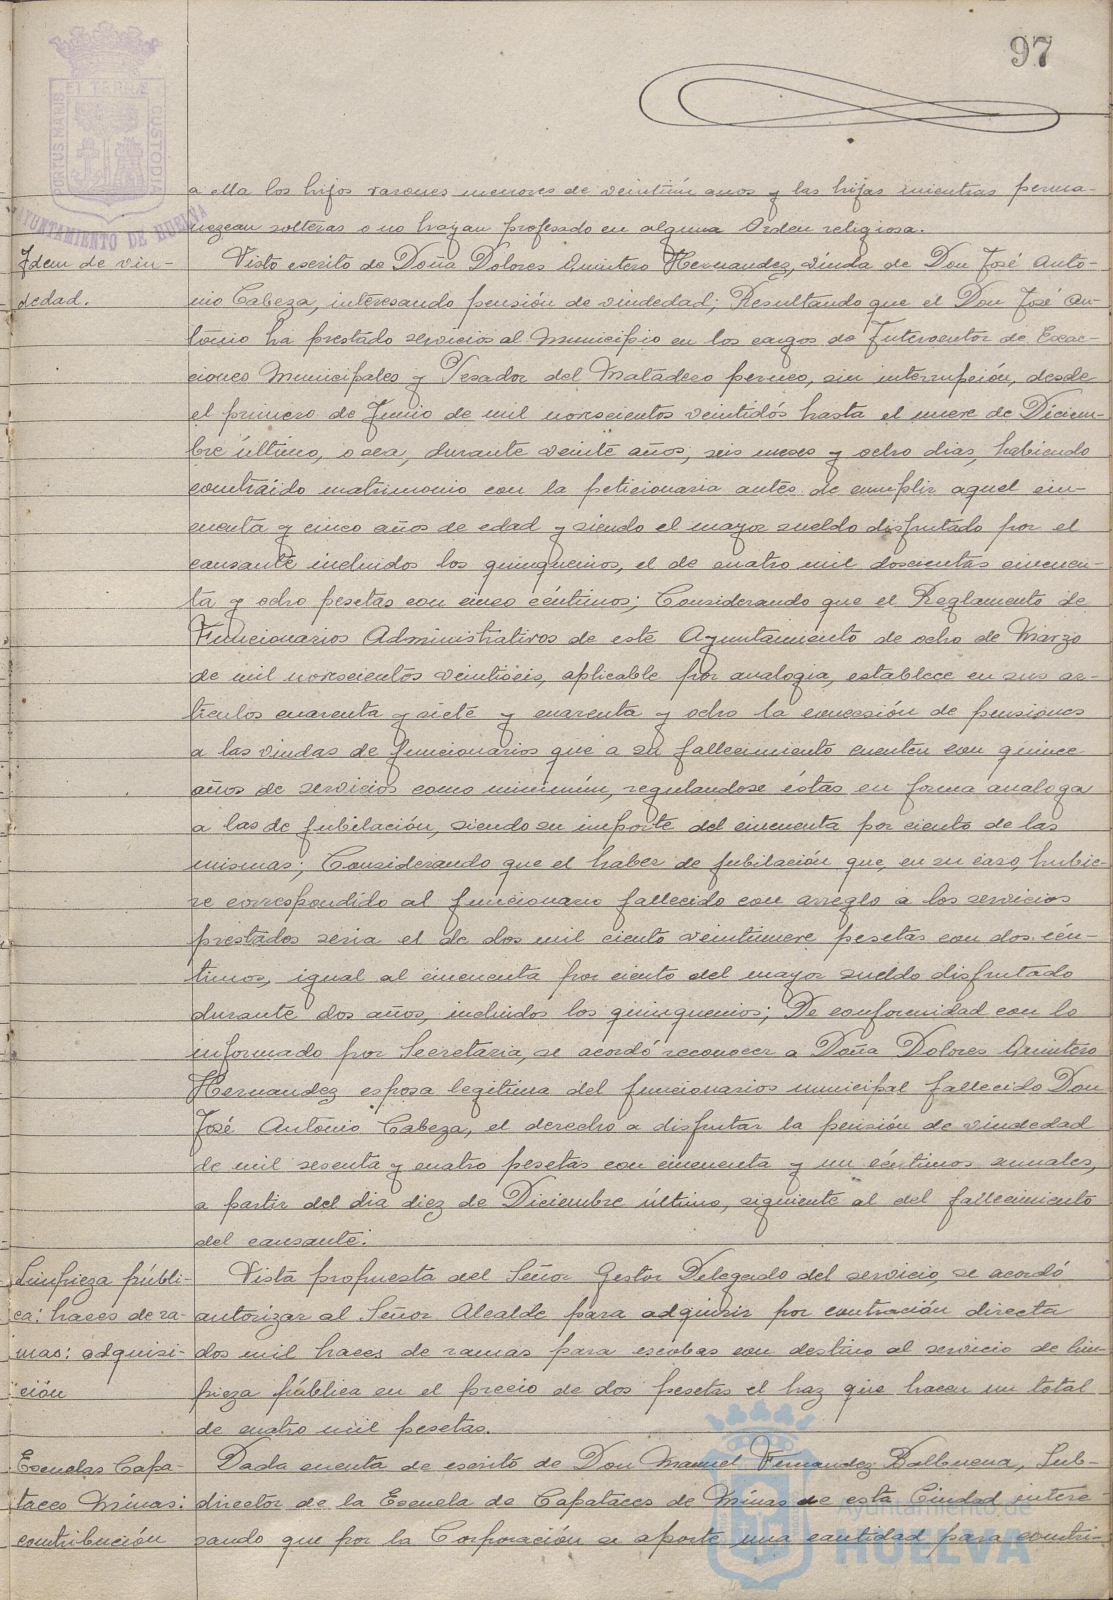 97
PORTUS MARIS ET TERRÆ CUSTODIA
AYUNTAMIENTO DE HUELVA
a ella los hijos varones menores de veintiún anos y las hijas mientras perma-
nezcan solteras o no hayan profesado en alguna Orden religiosa.
Idem de viu-
dedad.
Visto escrito de Doña Dolores Quintero Hernandez, viuda de Don José Anto-
nio Cabeza, interesando pensión de viudedad; Resultando que el Don José An-
tonio ha prestado servicios al Municipio en los cargos de Interventor de Exac-
ciones Municipales y Pesador del Matadero perneo, sin interrupción, desde
el primero de Junio de mil novecientos veintidós hasta el nueve de Diciem-
bre último, o sea, durante veinte años, seis meses y ocho dias, habiendo
contraido matrimonio con la peticionaria antes de cumplir aquel cin-
cuenta y cinco años de edad y siendo el mayor sueldo disfrutado por el
causante incluidos los quinquenios, el de cuatro mil doscientas cincuen-
ta y ocho pesetas con cinco céntimos; Considerando que el Reglamento de
Funcionarios Administrativos de este Ayuntamiento de ocho de Marzo
de mil novecientos veintiseis, aplicable por analogia, establece en sus ar-
ticulos cuarenta y siete y cuarenta y ocho la concesión de pensiones
a las viudas de funcionarios que a su fallecimiento cuenten con quince
años de servicios como minimún, regulandose éstas en forma analoga
a las de jubilación, siendo su importe del cincuenta por ciento de las
mismas; Considerando que el haber de jubilación que, en su caso, hubie-
re correspondido al funcionario fallecido con arreglo a los servicios
prestados seria el de dos mil ciento veintinueve pesetas con dos cén-
timos, igual al cincuenta por ciento del mayor sueldo disfrutado
durante dos años, incluidos los quinquenios; De conformidad con lo
informado por Secretaria, se acordó reconocer a Doña Dolores Quintero
Hernandez esposa legitima del funcionarios municipal fallecido Don
José Antonio Cabeza, el derecho a disfrutar la pensión de viudedad
de mil sesenta y cuatro pesetas con cincuenta y un céntimos anuales,
a partir del dia diez de Diciembre último, siguiente al del fallecimiento
del causante.
Limpieza públi-
ca: haces de ra-
mas: adquisi-
ción
Vista propuesta del Señor Gestor Delegado del servicio, se acordó
autorizar al Señor Alcalde para adquirir por contración directa
dos mil haces de ramas para escobas con destino al servicio de lim-
pieza pública en el precio de dos pesetas el haz que hacen un total
de cuatro mil pesetas.
Escuelas Capa-
taces Minas:
contribución
Dada cuenta de escrito de Don Manuel Fernandez Balbuena, Sub-
director de la Escuela de Capataces de Minas de esta Ciudad intere-
sando que por la Corporación se aporte una cantidad para contri-
Ayuntamiento de
HUELVA